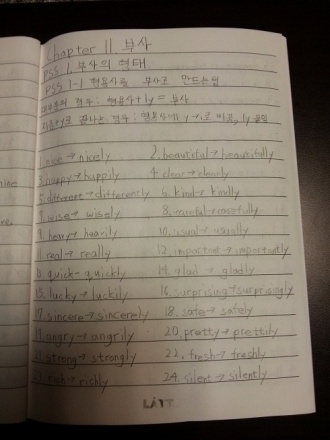 Chapter 11. 부사
PSS 1. 부사의 형태
PSS 1-1 형용사를 부사로 만드는 법
대부분의 경우: 형용사+ly = 부사
자음+y로 끝나는 경우: 형용사의 y→i로 바꾸고, ly 붙임
1. nice → nicely 2. beautiful → beautifully
3. happy → happily 4. clear → clearly
5. different → differently 6. kind → kindly
7. wise → wisely 8. careful → carefully
9. heavy → heavily 10. usual → usually
11. real → really 12. important → importantly
13. quick → quickly 14. glad → gladly
15. lucky → luckily 16. surprising → surprisingly
17. sincere → sincerely 18. safe → safely
19. angry → angrily 20. pretty → prettily
21. strong → strongly 22. fresh → freshly
23. rich → richly 24. silent → silently